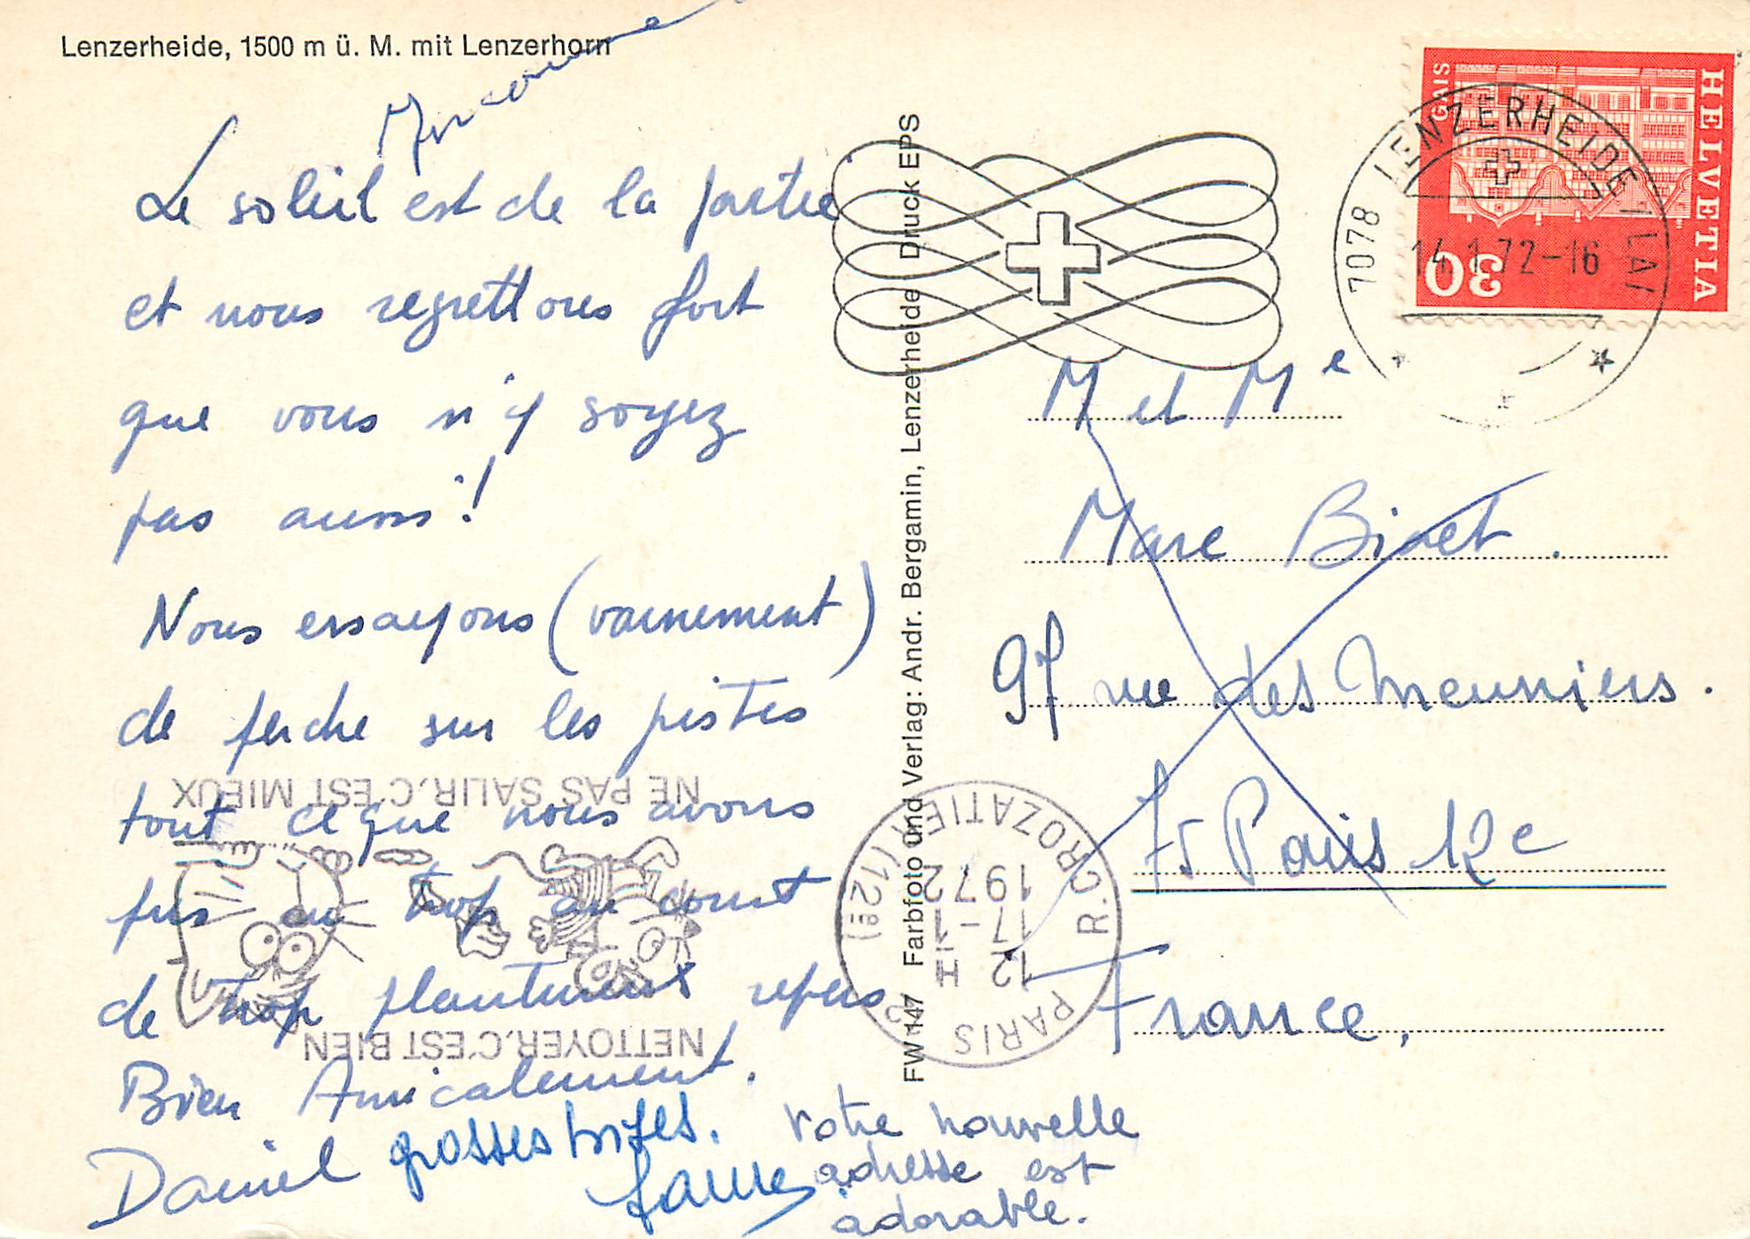 Lenzerheide, 1500 m ü. M. mit Lenzerhorn
Le soleil est de la partie
et nous regrettons fort
que vous n'y soyez
pas aussi !
Nous essayons (vainement)
de perdre sur les pistes
tout ce que nous avons
pris au trop au court
de trop plantureux repas
Bien Amicalement.
Daniel
grosses bises.
votre nouvelle
adresse est
adorable.
FW 147 Farbfoto und Verlag: Andr. Bergamin, Lenzerheide Druck EPS
HELVETIA
GAIS
30
7078 LENZERHEIDE (LAI)
14.1.72-16
M et Me
Marc Binet.
97 rue des Meuniers.
75 Paris 12e
France.
NETTOYER.C'EST BIEN
NE PAS SALIR.C'EST MIEUX
PARIS
R. CROZATIER (12e)
12 H
17-1
1972